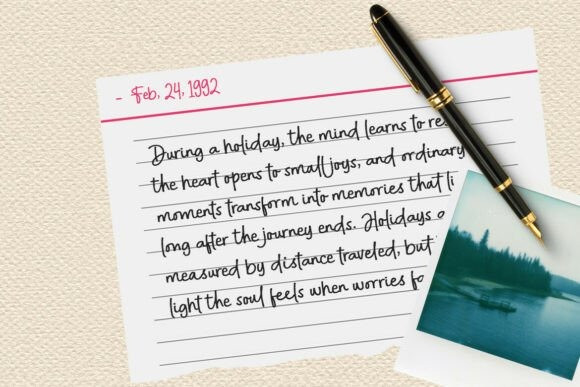 - Feb, 24, 1992
During a holiday, the mind learns to
the heart opens to small joys, and ordinary
moments transform into memories that
long after the journey ends. Holidays
measured by distance traveled, but
light the soul feels when worries